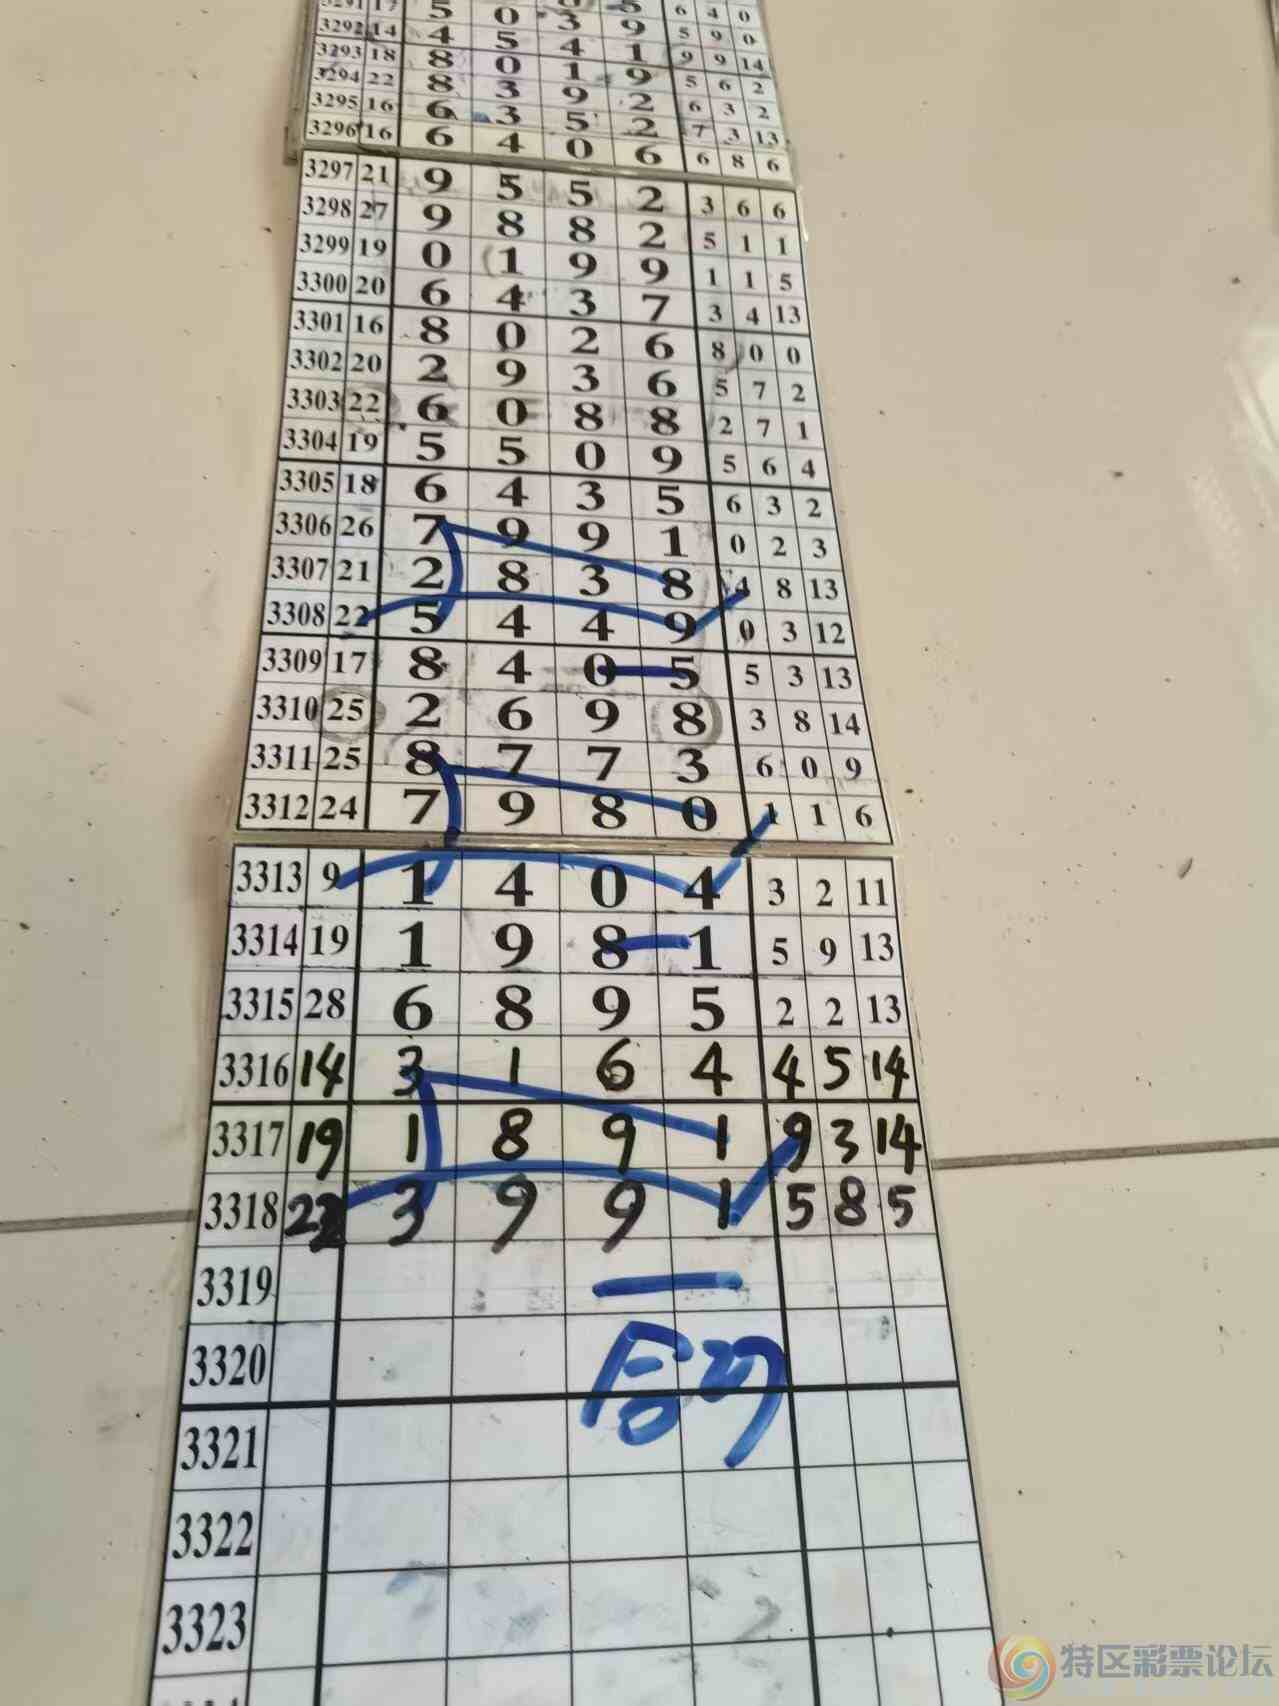 3292 14 4 5 4 1 5 9 0
3293 18 8 0 1 9 9 9 14
3294 22 8 3 9 2 5 6 2
3295 16 6 3 5 2 6 3 2
3296 16 6 4 0 6 7 3 13
6 8 6
3297 21 9 5 5 2 3 6 6
3298 27 9 8 8 2 5 1 1
3299 19 0 1 9 9 1 1 5
3300 20 6 4 3 7 3 4 13
3301 16 8 0 2 6 8 0 0
3302 20 2 9 3 6 5 7 2
3303 22 6 0 8 8 2 7 1
3304 19 5 5 0 9 5 6 4
3305 18 6 4 3 5 6 3 2
3306 26 7 9 9 1 0 2 3
3307 21 2 8 3 8 4 8 13
3308 22 5 4 4 9 0 3 12
3309 17 8 4 0 5 5 3 13
3310 25 2 6 9 8 3 8 14
3311 25 8 7 7 3 6 0 9
3312 24 7 9 8 0 1 1 6
3313 9 1 4 0 4 3 2 11
3314 19 1 9 8 1 5 9 13
3315 28 6 8 9 5 2 2 13
3316 14 3 1 6 4 4 5 14
3317 19 1 8 9 1 9 3 14
3318 22 3 9 9 1 5 8 5
3319
3320
合27
3321
3322
3323
特区彩票论坛